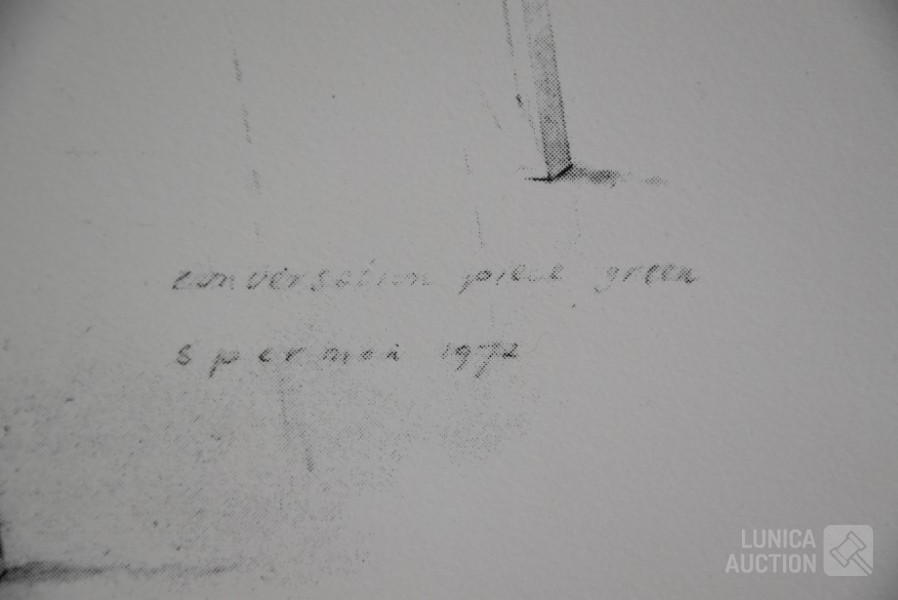 conversation piece green
spermoi 1972
LUNICA
AUCTION